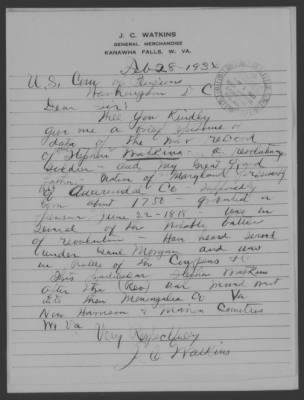 J. C. WATKINS
GENERAL MERCHANDISE
KANAWHA FALLS, W. VA.
Feb 28 - 193
U.S. Com of Pensions
Washington D C
Dear Sir:
Will You Kindly
give me a brief
data of The War record
of Stephen Watkins - a revolutionary
Soldier - and my Great Grand
father - Native of Maryland
of Co -
born about 1750 - granted a
pension June 22 - 1818 - was in
several of the Notable battles
of revolution - Has served
under Morgan and was
in battle of the Cowpens
This particular Stephen Watkins
after the (Rev) War moved out
into then Monongalia Co Va
Now Harrison & Marion Counties
W. Va.
Very Respectfully
J. C. Watkins